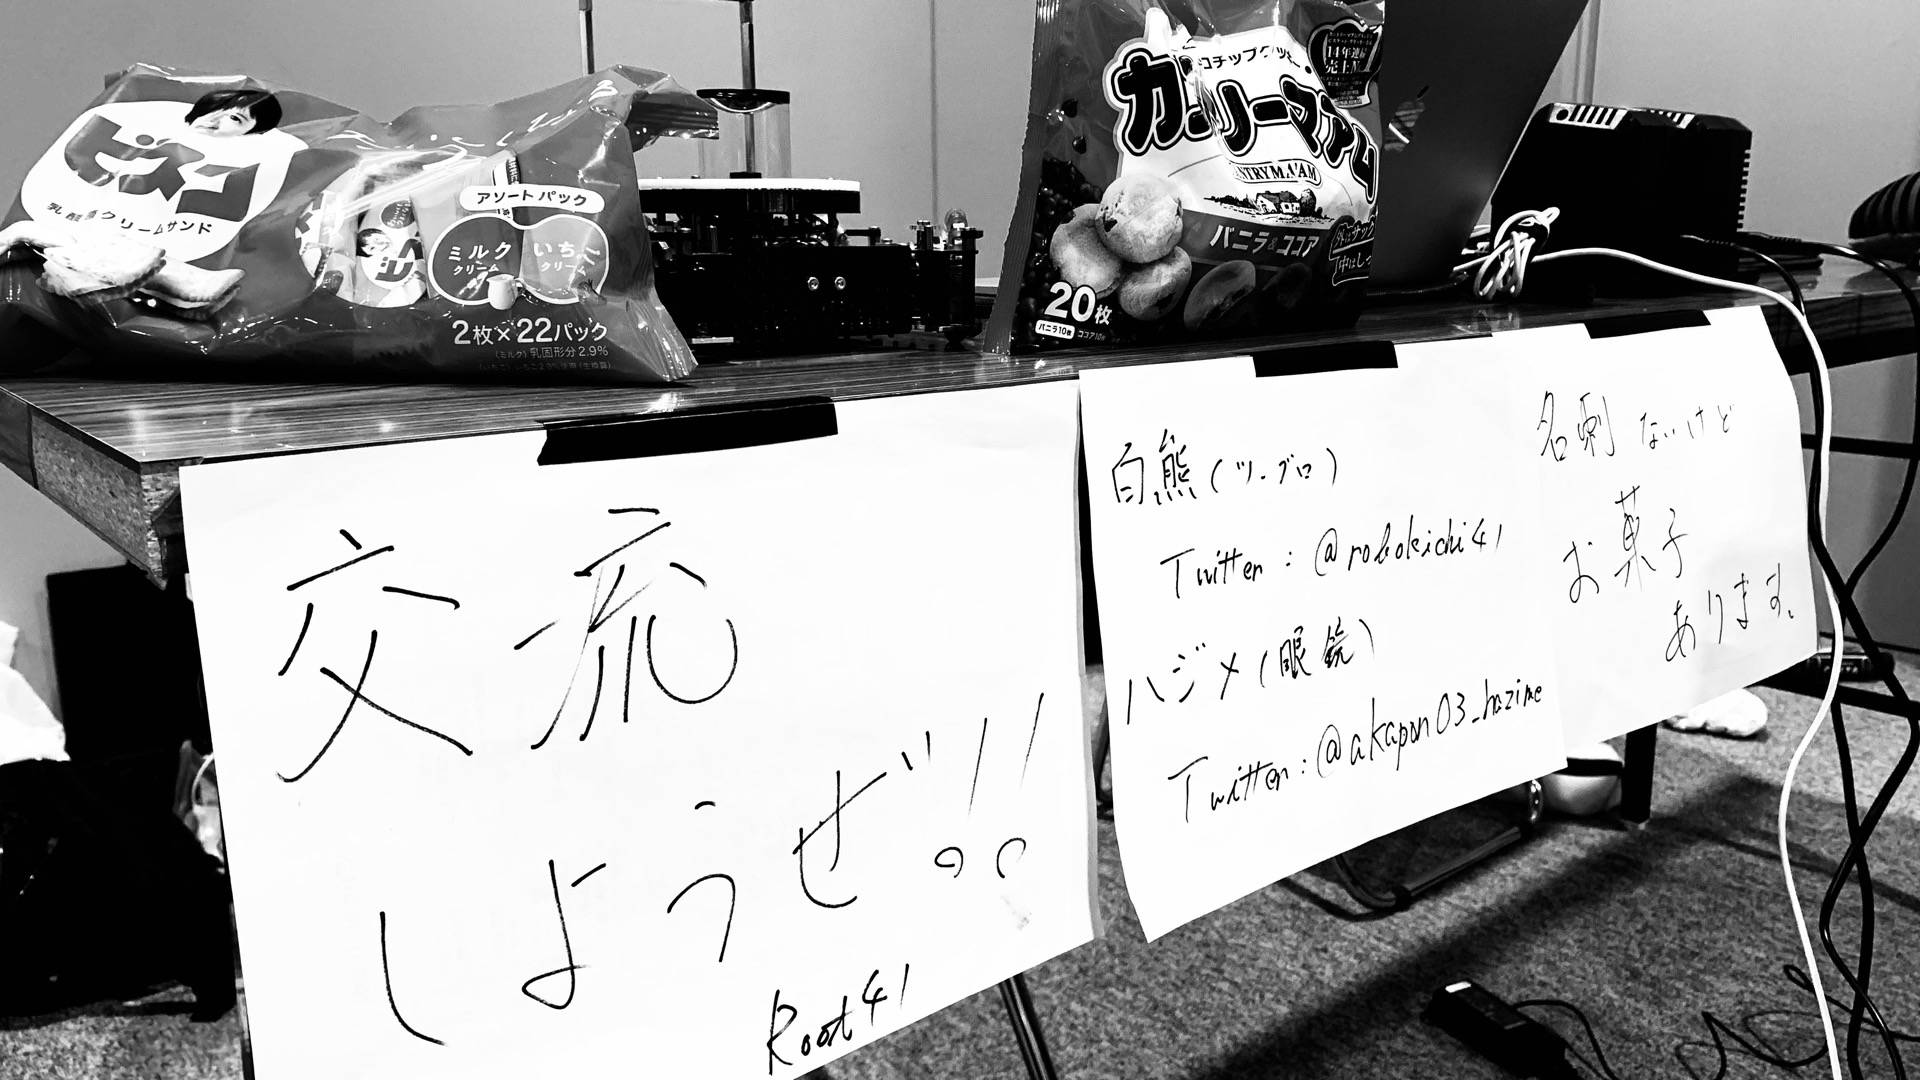 ビスコ
乳酸菌クリームサンド
アソートパック
ミルク
クリーム
いちご
クリーム
2枚×22パック
(ミルク) 乳固形分2.9%
チョコチップクッキー
カントリーマアム
COUNTRY MA'AM
バニラ&ココア
14年連続
売上No.
20枚
バニラ10枚 ココア10枚
交流
しようぜ!!
Root41
白熊(ツーブロ)
Twitter : @robokichi41
ハジメ(眼鏡)
Twitter : @akapon03_hazime
名刺 ないけど
お菓子
あります。